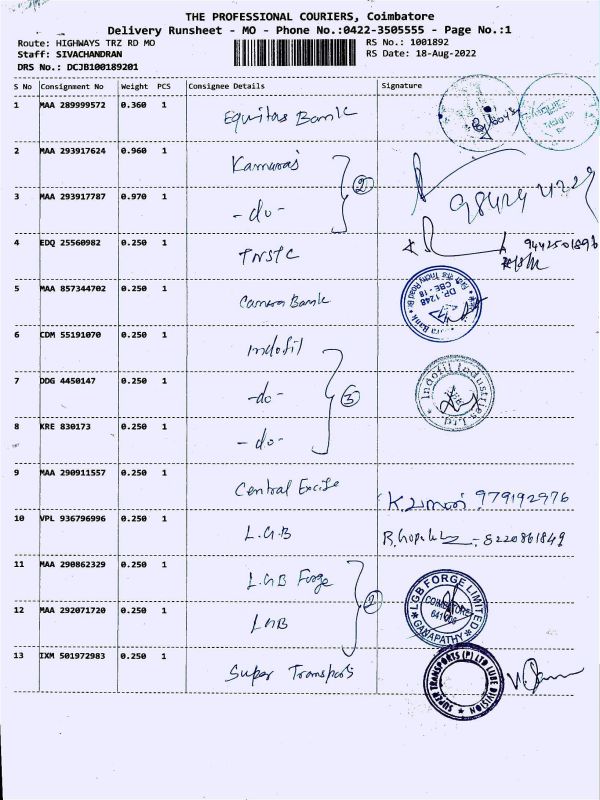 THE PROFESSIONAL COURIERS, Coimbatore
Delivery Runsheet - MO - Phone No.:0422-3505555 - Page No.:1
Route: HIGHWAYS TRZ RD MO
RS No.: 1001892
Staff: SIVACHANDRAN
RS Date: 18-Aug-2022
DRS No.: DCJB100189201
S No Consignment No Weight PCS Consignee Details Signature
1 MAA 289999572 0.360 1 Equitas Bank
2 MAA 293917624 0.960 1 Kamaraj
3 MAA 293917787 0.970 1 -do- 2
4 EDQ 25560982 0.250 1 TNSTC 9442501896
5 MAA 857344702 0.250 1 Canara Bank DP 1248 CBE - 18
6 CDM 55191070 0.250 1 Indofil
7 DDG 4450147 0.250 1 -do- 3 Indofil Industries Ltd.
8 KRE 830173 0.250 1 -do-
9 MAA 290911557 0.250 1 Central Excise 979192976
10 VPL 936796996 0.250 1 L.G.B 8220861849
11 MAA 290862329 0.250 1 LGB Forge 2 LGB FORGE LIMITED COIMBATORE 641006 GANAPATHY
12 MAA 292071720 0.250 1 LGB
13 IXM 501972983 0.250 1 Super Transports SUPER TRANSPORTS (P) LTD LUBE DIVISION